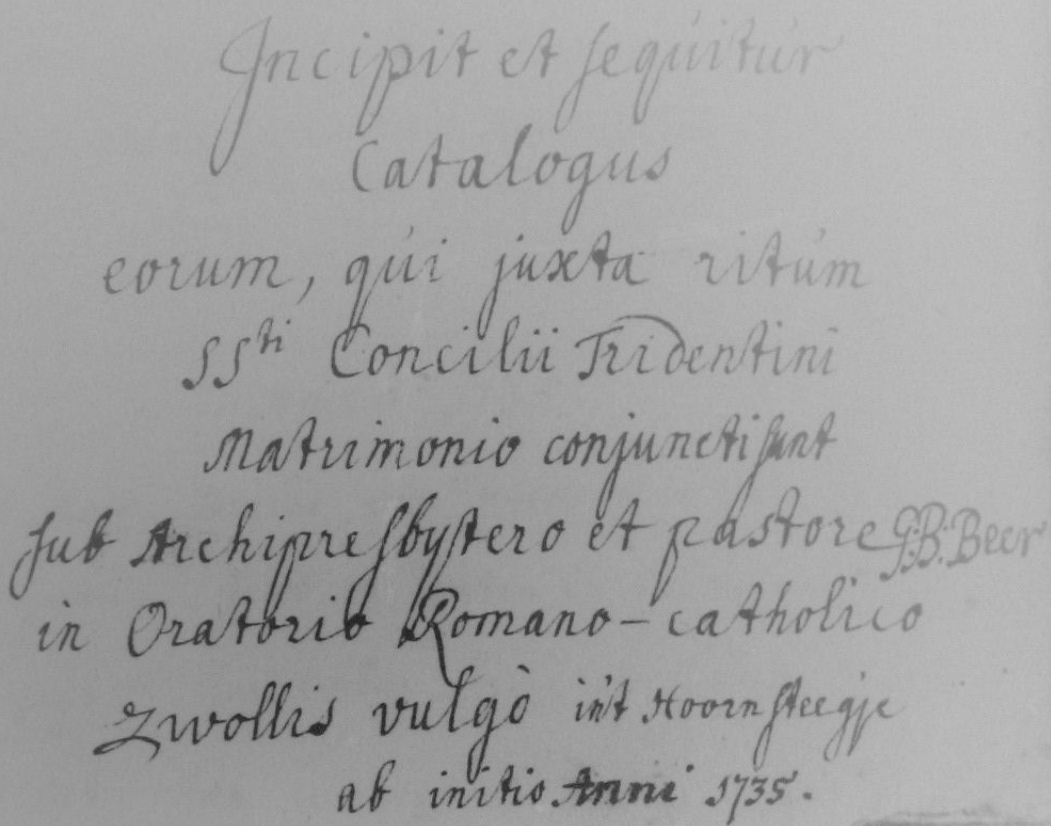 Incipit et sequitur
Catalogus
eorum, qui juxta ritum
SSti Concilii Tridentini
Matrimonio conjuncti sunt
sub Archipresbytero et pastore G:B: Beer
in Oratorio Romano-catholico
Zwollis vulgò in't Hoornsteegje
ab initio Anni 1735.